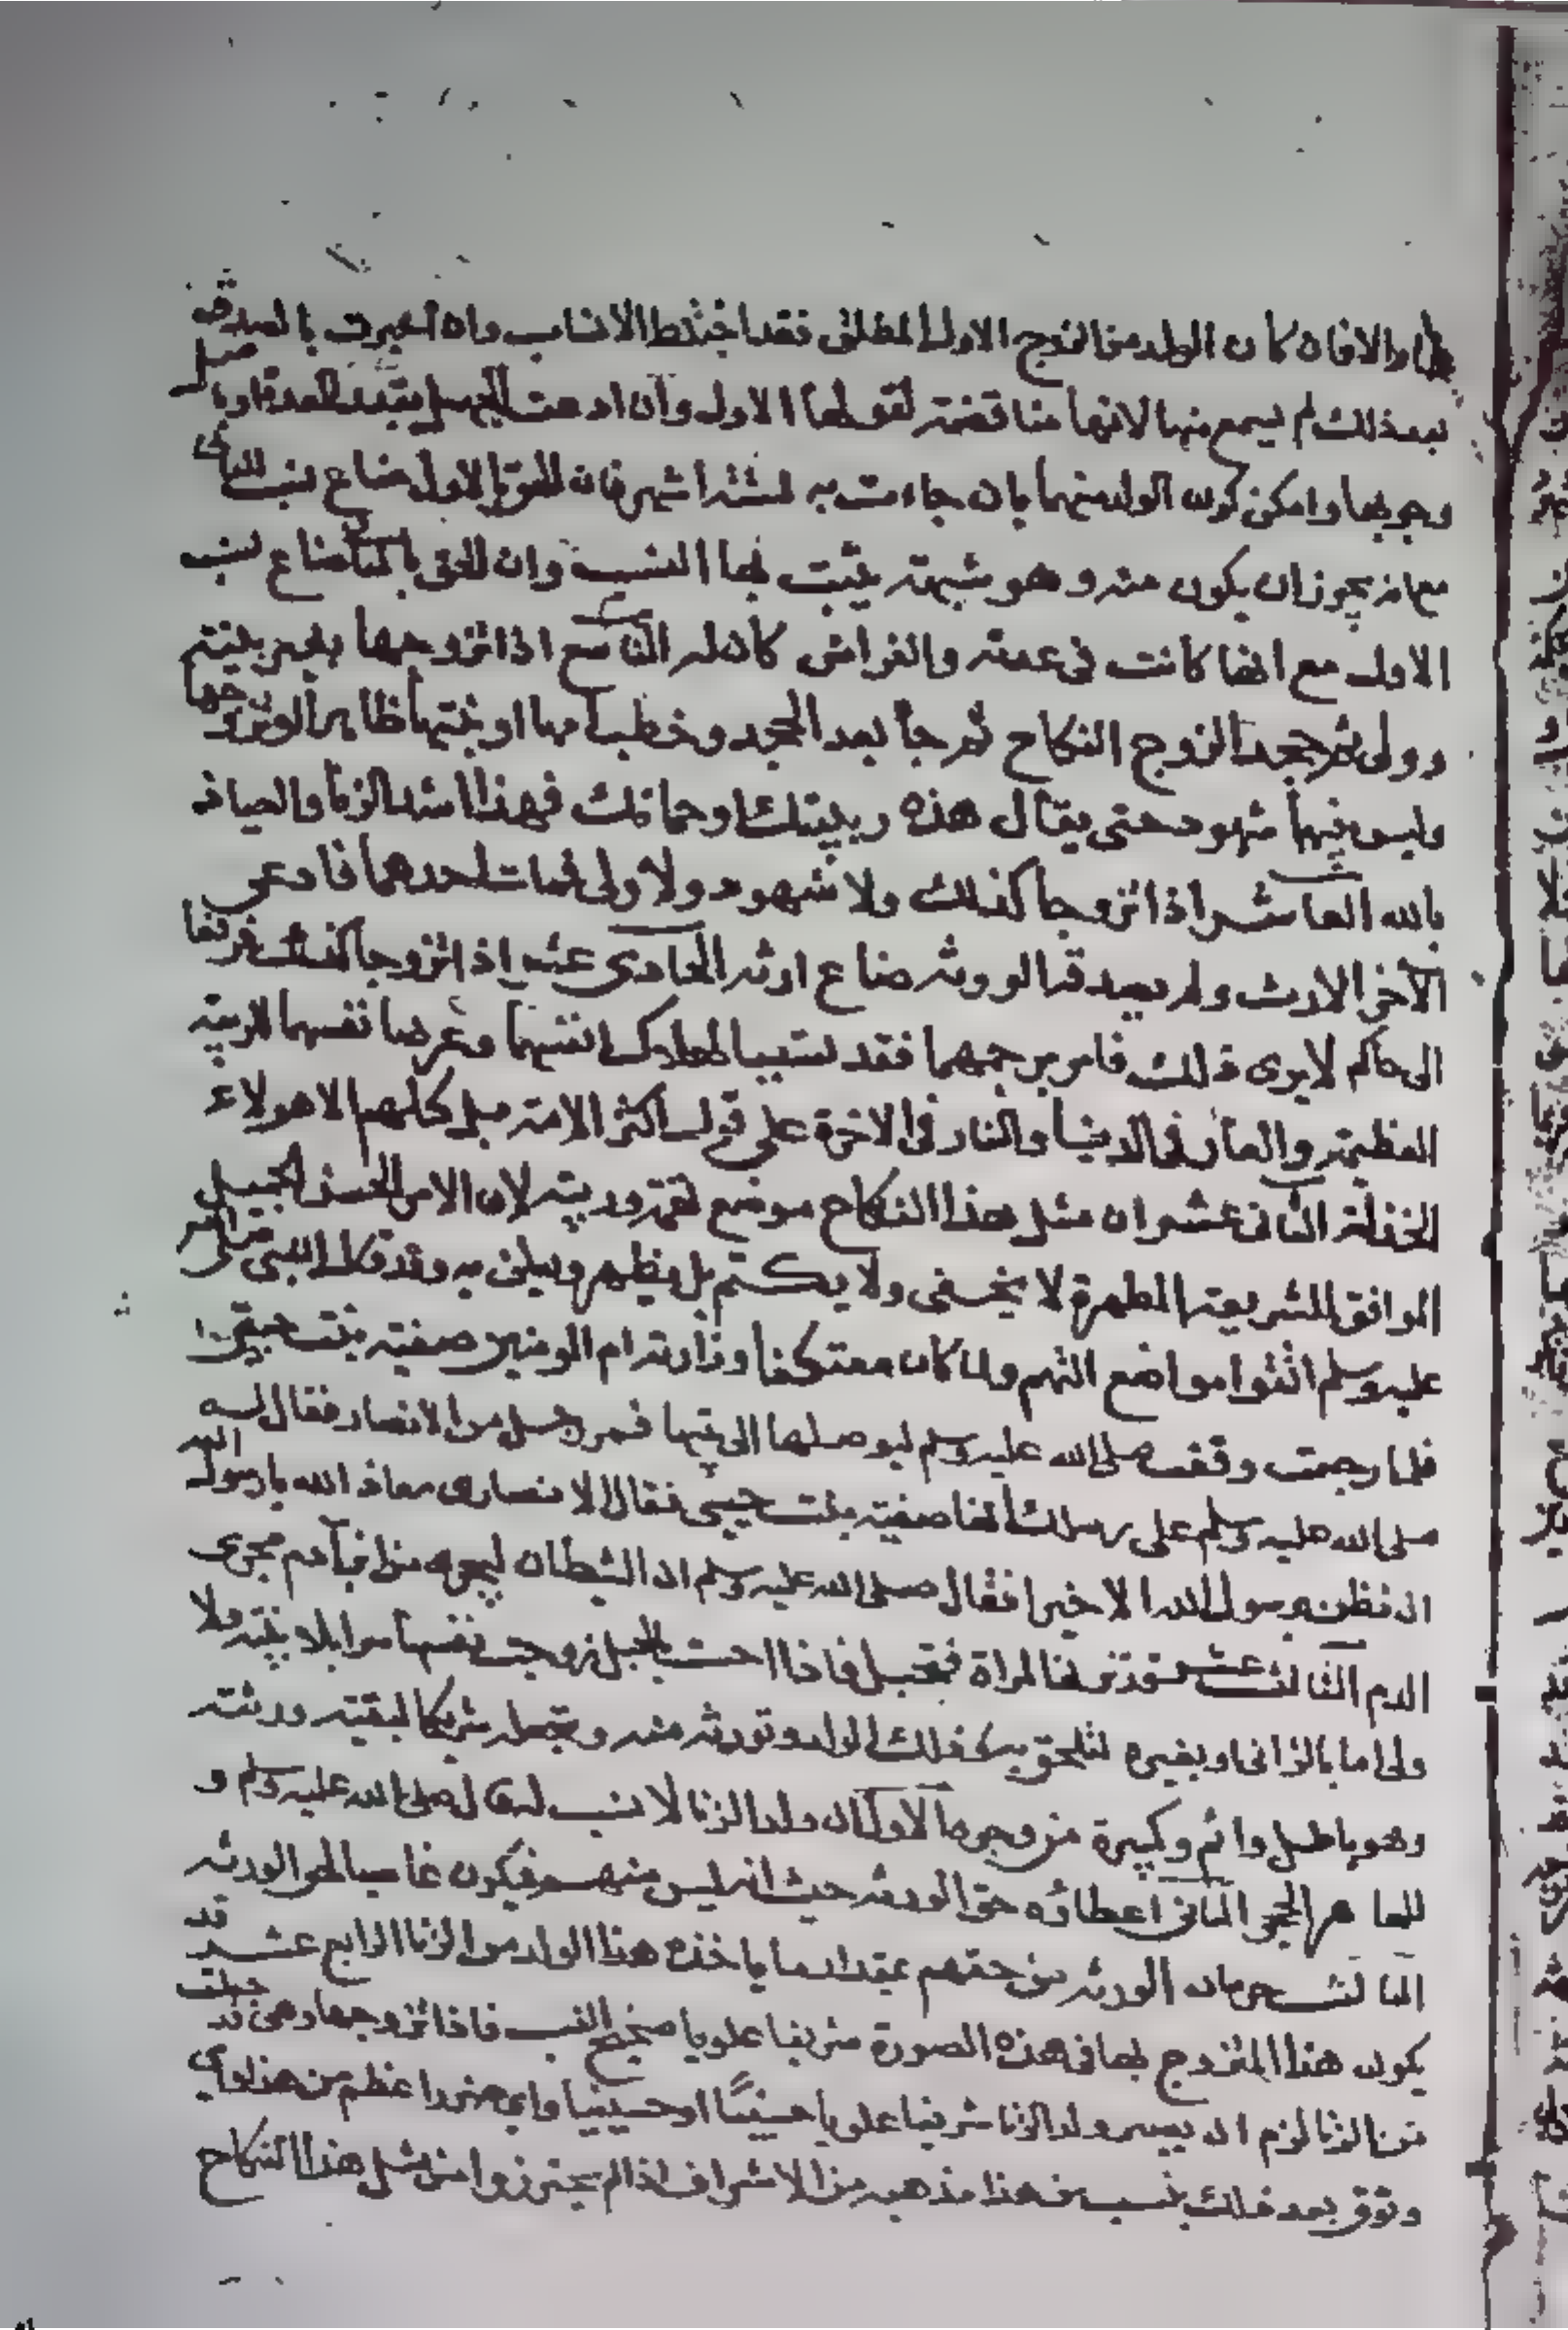 والا فان كان الولد من الزوج الاول المطلق فقد اختلط الانساب وان اخبرت بالعدة
بعد ذلك لم يسمع منها لانها مناقضة لقولها الاول وان ادعت الجهل بتعدد العدة او باصل
وجوبها وامكن كون الولد منهما بان جاءت به لستة اشهر فان الحق بالاول ضاع نسب الثاني
مع انه يجوز ان يكون منه وهو شبهة يثبت بها النسب وان الحق بالثاني ضاع نسب
الاول مع انها كانت في عدته والفراش كان له التاسع اذا تزوجها بغير بينة
وولي ثم جحد الزوج النكاح ثم جا بعد الجحد وخطب امها او بنتها ظاهرا لو تزوجها
وليس فيها شهود حتى يقال هذه ربيبتك او حماتك فهذا اشد الزنا والعياذ
بالله العاشر اذا تزوجا كذلك ولا شهود ولا ولي فمات احدهما فادعى
الآخر الارث ولم يصدقه الورثة ضاع ارثه الحادي عشر اذا تزوجا كذلك فرفعا
الى حاكم لا يرى ذلك فامر برجمهما فقد تسببا لهلاك انفسهما وعرضا نفسهما للرزية
العظيمة والعار في الدنيا والنار في الاخرة على قول اكثر الامة بل كلهم الا هولاء
الثاني عشر ان مثل هذا النكاح موضع تهمة وريبة لان الامر الحسن الجميل
الموافق للشريعة المطهرة لا يخفى ولا يكتم بل يظهر ويعلن به وقد قال النبي صلى الله
عليه وسلم اتقوا مواضع التهم ولما كان معتكفا وزارته ام المومنين صفية بنت حيي
فلما رجعت وقف صلى الله عليه وسلم ليوصلها الى بيتها فمر رجل من الانصار فقال له
صلى الله عليه وسلم على رسلك انها صفية بنت حيي فقال الانصاري معاذ الله يا رسول الله
ان نظن برسول الله الا خيرا فقال صلى الله عليه وسلم ان الشيطان ليجري من ابن آدم مجرى
الدم الثالث عشر قد تزنى المراة فتحبل فاذا احست بالحبل زوجت نفسها سرا بلا بينة ولا
ولي اما بالزاني او بغيره لتلحق به كذلك الولد وتورثه منه وتجعله شريكا لبقية ورثته
وهو باطل واثم وكبيرة من وجوه الاول ان ولد الزنا لا نسب له قال صلى الله عليه وسلم و
للعاهر الحجر الثاني اعطاؤه حق الورثة حيث انه ليس منهم فيكون غاصبا لحق الورثة
الثالث حرمان الورثة من حقهم بمقدار ما ياخذه هذا الولد من الزنا الرابع عشر قد
يكون هذا المتزوج بها في هذه الصورة شريفا علويا صحيح النسب فاذا تزوجها وهي قد حبلت
من الزنا لزم ان يصير ولد الزنا شريفا علويا حسنيا او حسينيا واي ضرر اعظم من هذا واي
وثوق بعد ذلك بنسب من هذا مذهبه من الاشراف اذا لم يحترزوا من مثل هذا النكاح